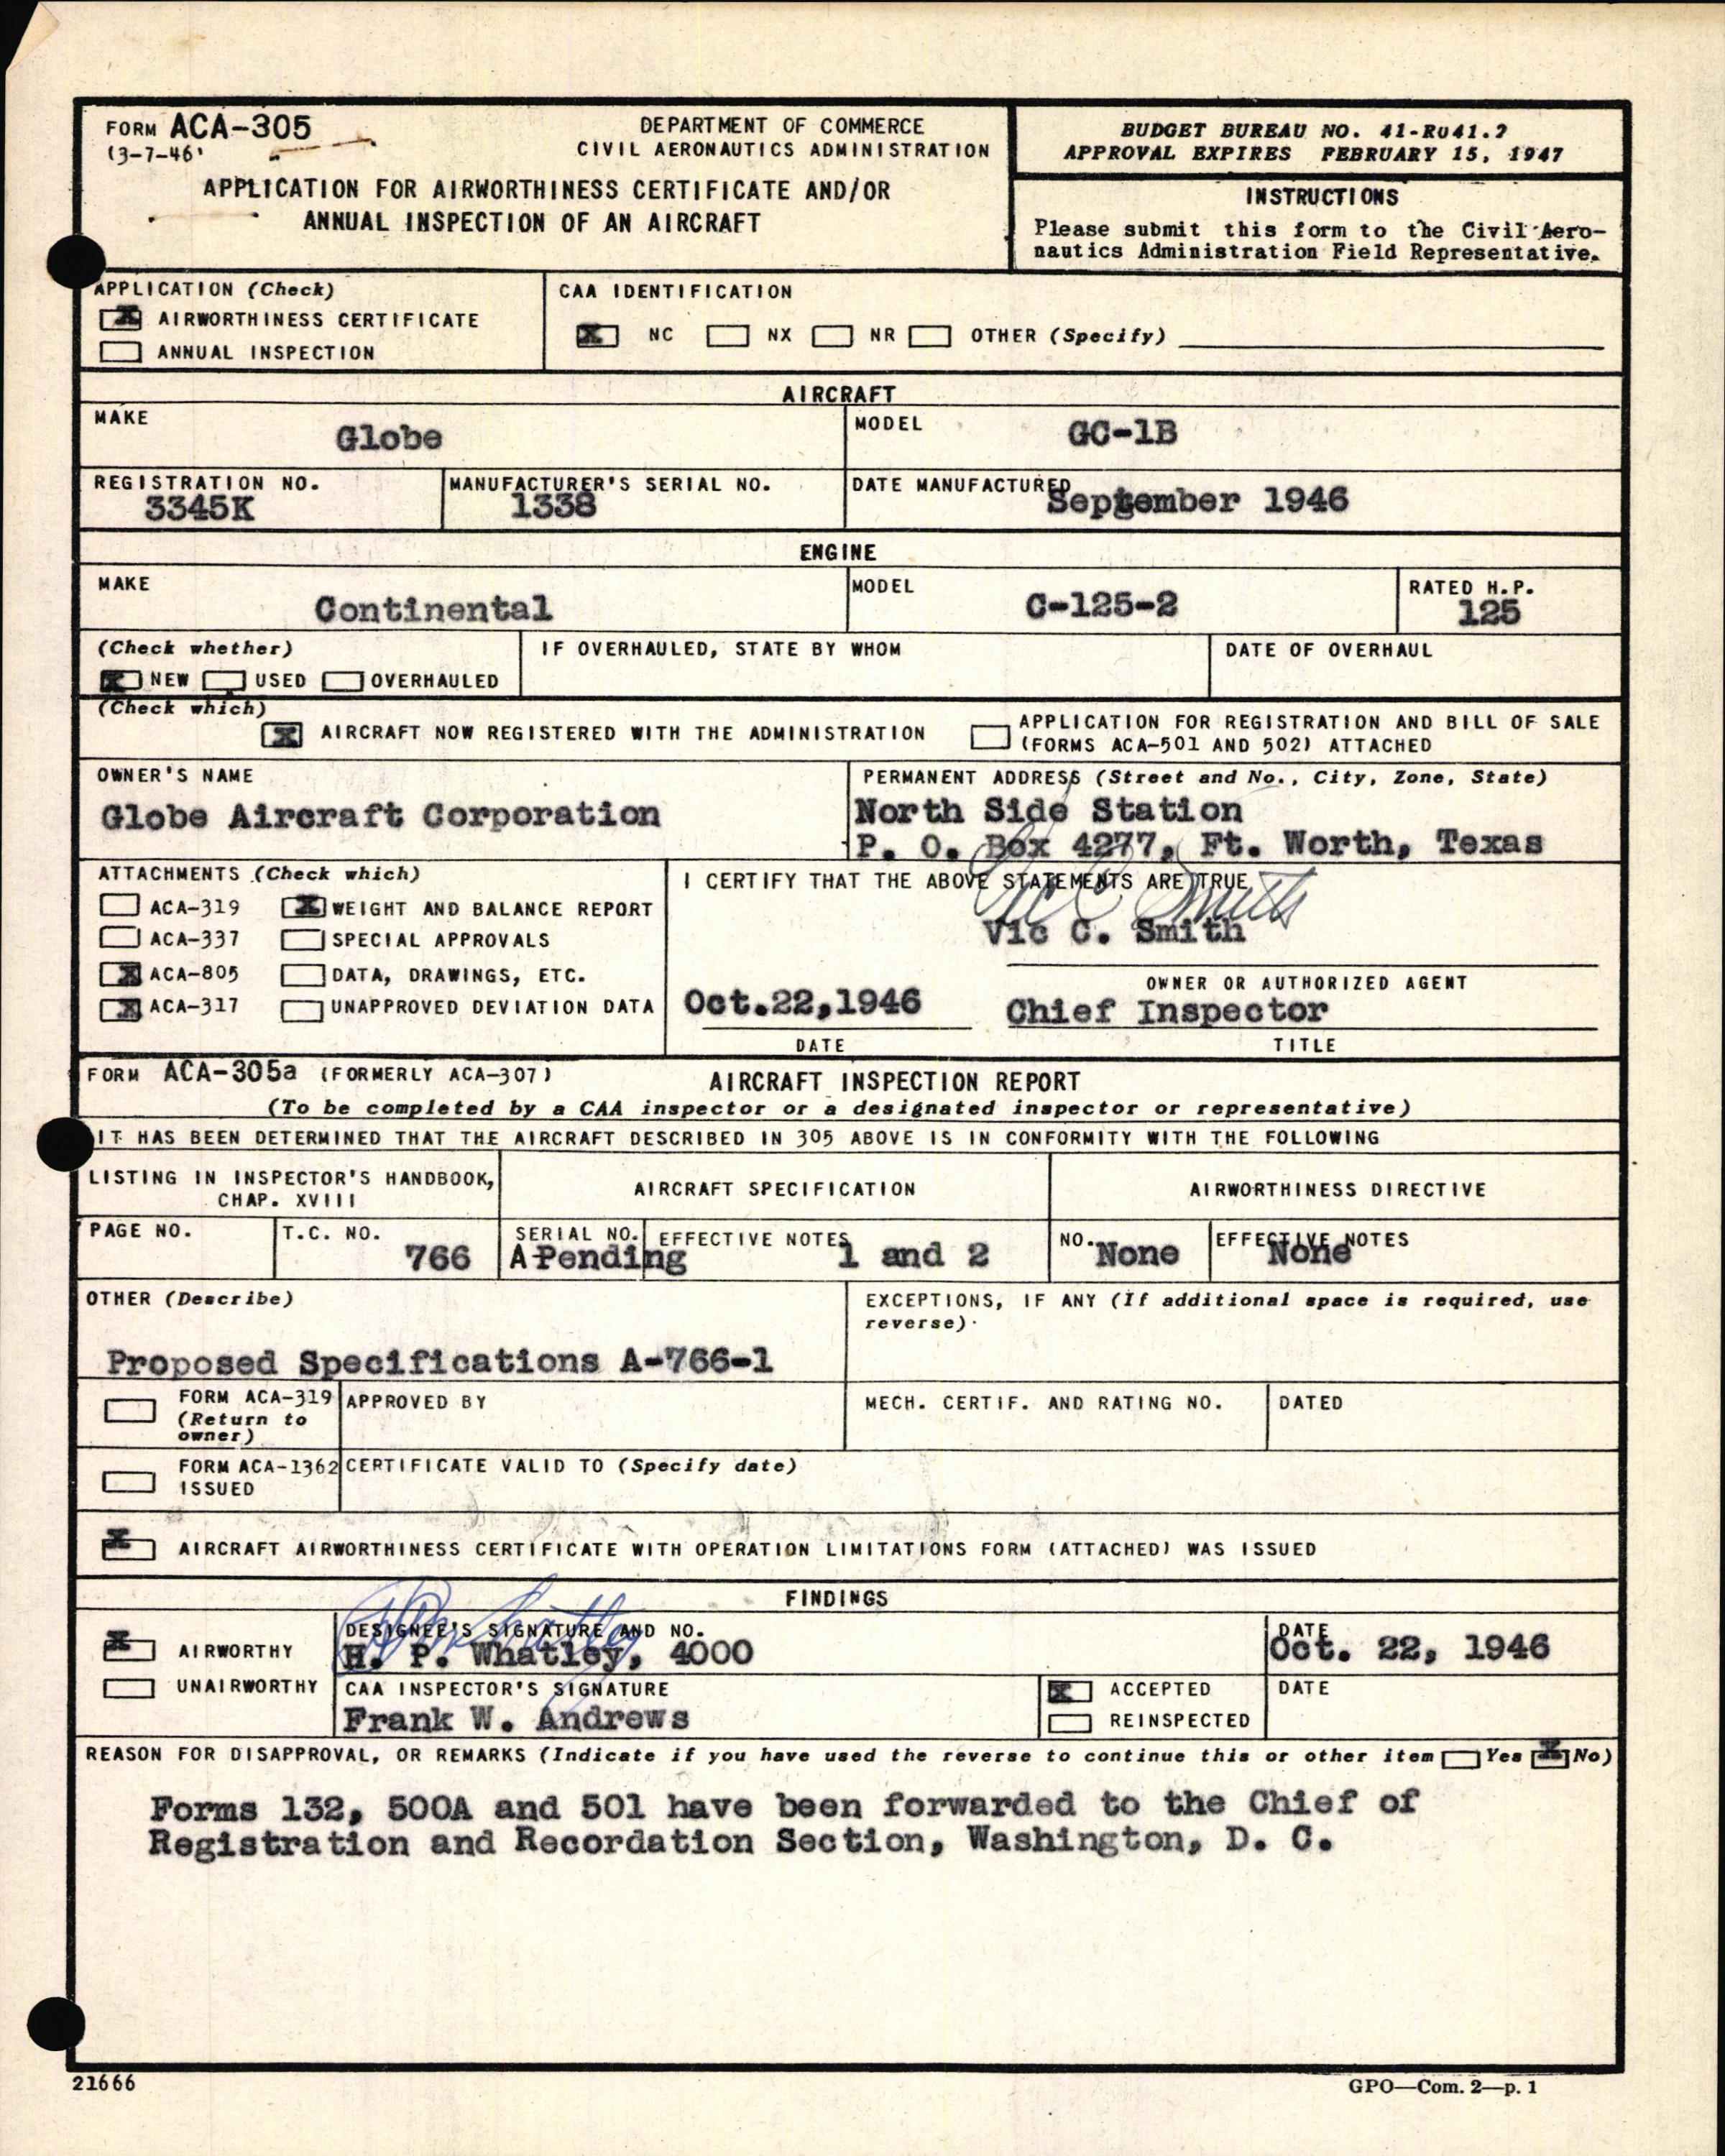 FORM ACA-305
(3-7-46)
DEPARTMENT OF COMMERCE
CIVIL AERONAUTICS ADMINISTRATION
APPLICATION FOR AIRWORTHINESS CERTIFICATE AND/OR
ANNUAL INSPECTION OF AN AIRCRAFT
BUDGET BUREAU NO. 41-R041.2
APPROVAL EXPIRES FEBRUARY 15, 1947
INSTRUCTIONS
Please submit this form to the Civil Aero-
nautics Administration Field Representative.
APPLICATION (Check)
X AIRWORTHINESS CERTIFICATE
ANNUAL INSPECTION
CAA IDENTIFICATION
X NC NX NR OTHER (Specify)
AIRCRAFT
MAKE
Globe
MODEL
GC-1B
REGISTRATION NO.
3345K
MANUFACTURER'S SERIAL NO.
1338
DATE MANUFACTURED
September 1946
ENGINE
MAKE
Continental
MODEL
C-125-2
RATED H.P.
125
(Check whether)
X NEW USED OVERHAULED
IF OVERHAULED, STATE BY WHOM
DATE OF OVERHAUL
(Check which)
X AIRCRAFT NOW REGISTERED WITH THE ADMINISTRATION
APPLICATION FOR REGISTRATION AND BILL OF SALE
(FORMS ACA-501 AND 502) ATTACHED
OWNER'S NAME
Globe Aircraft Corporation
PERMANENT ADDRESS (Street and No., City, Zone, State)
North Side Station
P. O. Box 4277, Ft. Worth, Texas
ATTACHMENTS (Check which)
ACA-319 X WEIGHT AND BALANCE REPORT
ACA-337 SPECIAL APPROVALS
X ACA-805 DATA, DRAWINGS, ETC.
X ACA-317 UNAPPROVED DEVIATION DATA
I CERTIFY THAT THE ABOVE STATEMENTS ARE TRUE
Vic C Smith
Vic C. Smith
OWNER OR AUTHORIZED AGENT
Oct.22,1946 Chief Inspector
DATE TITLE
FORM ACA-305a (FORMERLY ACA-307)
AIRCRAFT INSPECTION REPORT
(To be completed by a CAA inspector or a designated inspector or representative)
IT HAS BEEN DETERMINED THAT THE AIRCRAFT DESCRIBED IN 305 ABOVE IS IN CONFORMITY WITH THE FOLLOWING
LISTING IN INSPECTOR'S HANDBOOK,
CHAP. XVIII
AIRCRAFT SPECIFICATION
AIRWORTHINESS DIRECTIVE
PAGE NO.
T.C. NO.
766
SERIAL NO.
A-Pending
EFFECTIVE NOTES
1 and 2
NO.
None
EFFECTIVE NOTES
None
OTHER (Describe)
Proposed Specifications A-766-1
EXCEPTIONS, IF ANY (If additional space is required, use
reverse).
FORM ACA-319
(Return to
owner)
APPROVED BY
MECH. CERTIF. AND RATING NO.
DATED
FORM ACA-1362
ISSUED
CERTIFICATE VALID TO (Specify date)
X AIRCRAFT AIRWORTHINESS CERTIFICATE WITH OPERATION LIMITATIONS FORM (ATTACHED) WAS ISSUED
FINDINGS
X AIRWORTHY
UNAIRWORTHY
DESIGNEE'S SIGNATURE AND NO.
HP Whatley
H. P. Whatley, 4000
DATE
Oct. 22, 1946
CAA INSPECTOR'S SIGNATURE
Frank W. Andrews
X ACCEPTED
REINSPECTED
DATE
REASON FOR DISAPPROVAL, OR REMARKS (Indicate if you have used the reverse to continue this or other item Yes X No)
Forms 132, 500A and 501 have been forwarded to the Chief of
Registration and Recordation Section, Washington, D. C.
21666
GPO—Com. 2—p. 1